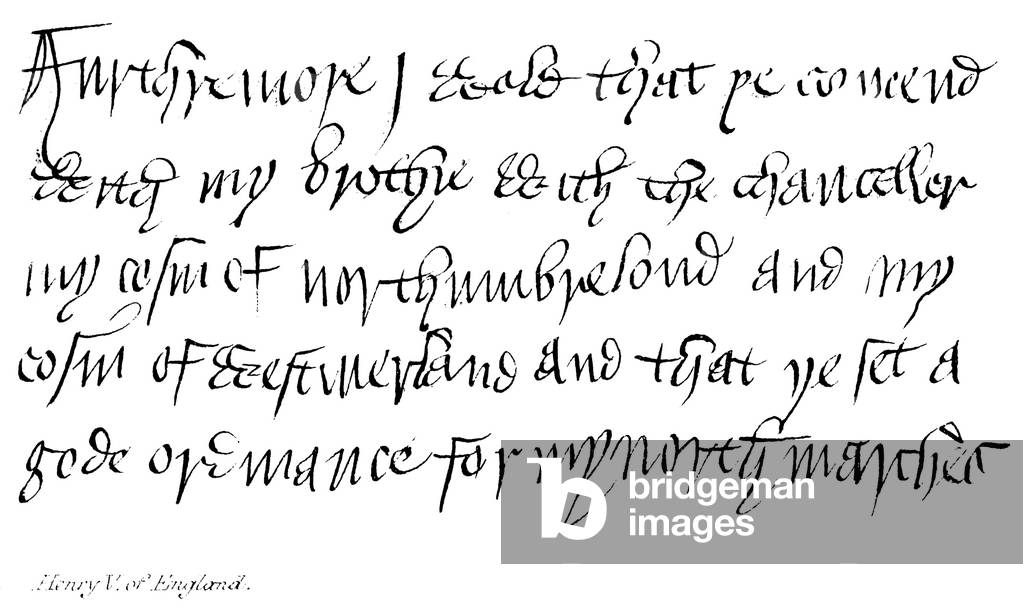 Furthremore I wold that ye comend
with my brothre with the chanceller
my cosin of northumbrelond and my
cosin of westmerland and that ye set a
gode ordinance for my north marches
bridgeman
images
Henry V. of England.